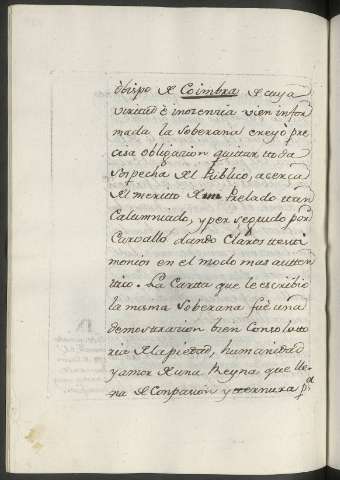 obispo de Coimbra de cuya
virtud è inocencia vien infor
mada la Soberana creyó pre
cisa obligazion quitar toda
sospecha del Publico, acerca
del merito de un Prelado tan
Calumniado, y per seguido por
Carvallo, dando Claros testi
monios en el modo mas auten
tico. La Carta que le escribio
la misma Soberana fue una
demostrazion bien Consolato
ria de la piedad, humanidad
y amor de una Reyna que lle
na de Conpasion y ternura pa